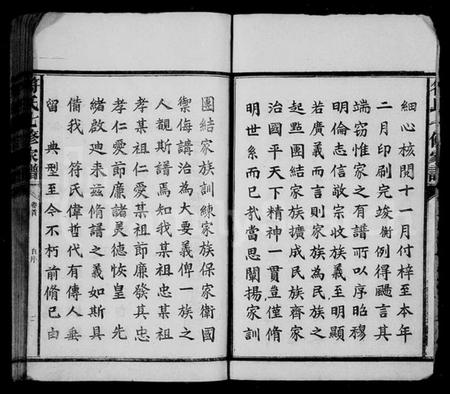 細心核閱十一月付梓至本年
二月印刷完竣衡例得颺言其
端窃惟家之有譜所以序昭穆
明倫志信敬宗收族義至明顯
若廣義而言則家族為民族之
起點團結家族擴成民族齊家
治國平天下精神一貫豈僅脩
明世系而已哉當思闡揚家訓
團結家族訓練家族保家衛國
禦侮講治為大要義俾一族之
人覩斯譜為知我某祖忠某祖
孝某祖仁愛某祖節廉發其忠
孝仁愛節廉諸美德恢皇先
緒啟迪來兹脩譜之義如斯具
備我符氏偉哲代有傳人垂
留典型至今不朽前脩已由
符氏七修家譜
卷首